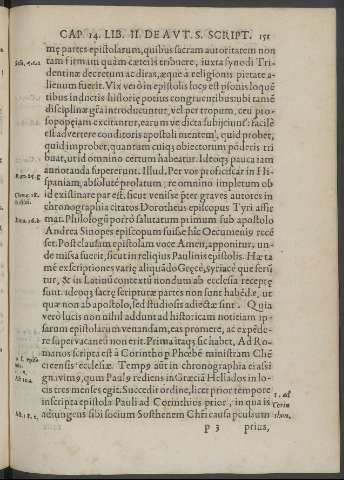 CAP. 14. LIB. II. DE AVT. S. SCRIPT. 151
mę partes epistolarum, quibus sacram autoritatem non
tam firmam quàm cæteris tribuere, iuxta synodi Tri-
dentinæ decretum ac diras, æque à religionis pietate a-
lienum fuerit. Vix verò in epistolis locꝰ est psonis loquē
tibus inductis historię potius congruentibus: ubi tamē
disciplinæ grā introducuntur, vel per tropum, ceu pro-
sopopeiam excitantur, earum ve dicta subijciunt: facilè
est advertere conditoris apostoli mentem, quid probet,
quid improbet, quantum cuiq; obiectorum põderis tri
buat, ut id omnino certum habeatur. Ideoq; pauca tam
annotanda supererunt. Illud, Per vos proficiscar in Hi-
Rom. 15. g
spaniam, absolutè prolatum; re omnino impletum ob
id existinare par est. sicut venisse pter graves autores in
chronographia citatos Dorotheus episcopus Tyri affir
mat. Philologū porrò salutatum primum sub apostolo
Rom. 16. b.
Andrea Sinopes episcopum fuisse hîc Oecumenio recē
set. Post clausam epistolam voce Amen, apponitur, un-
de missa fuerit, sicut in reliquis Paulinis epistolis. Hæ ta
mē exscriptiones varię aliquãdo Gręcè, Syriacè que ferū
tur, & in Latinū contextū nondum ab ecclesia receptę
sunt. adeoq; sacrę scripturæ partes non sunt habēdæ, ut
quæ non ab apostolo, sed studiosis adiectæ sint. Quia
verò lucis non nihil addunt ad historicam notitiam ip-
sarum epistolarum venandam, eas promere, ac expēde-
re supervacaneū non erit. Prima itaq; sic habet, Ad Ro-
manos scripta est à Corintho p Phœbē ministram Chē
creensis ecclesiæ. Tempꝰ aūt in chronographia ex assi-
gnavimꝰ, quum Paulꝰ rediens in Gręciā Hellados in lo-
cis tres menses egit. Succedit ordine, licet prior tempore
inscripta epistola Pauli ad Corinthios prior, in qua is
1. ad
Corin
thon.
adiungens sibi socium Sosthenem Chrī causa pulsum
p 3 prius,